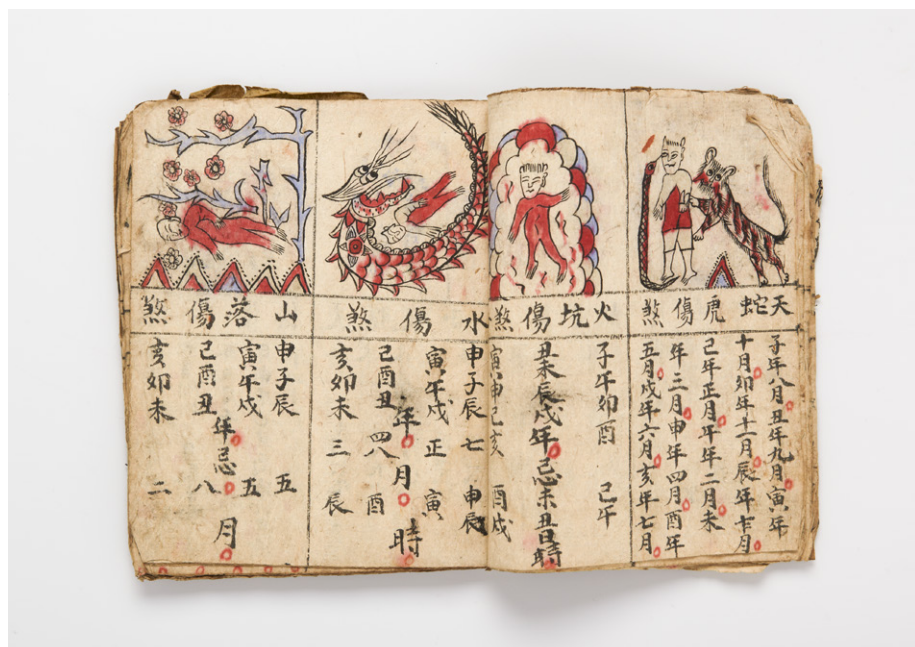 天蛇虎傷煞
子年八月丑年九月寅年
十月卯年十一月辰年十二月
己年正月午年二月未
年三月申年四月酉年
五月戌年六月亥年七月
火坑傷煞
子午卯酉 己午
丑未辰戌年忌未丑日時
寅申己亥 酉戌
水傷煞
申子辰 七 申辰
寅午戌 正 寅
年月時
己酉丑 四八 酉
亥卯未 三 辰
山落傷煞
申子辰 五
寅午戌 五
年忌月
己酉丑 八
亥卯未 二